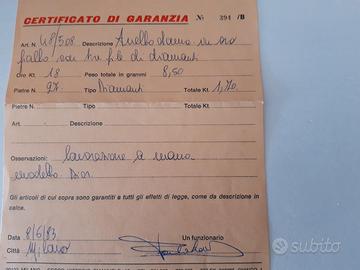 CERTIFICATO DI GARANZIA N° 394 /B
Art. N. 48/508 Descrizione Anello donna in oro
giallo con tre file di diamanti
Oro Kt. 18 Peso totale in grammi 8,50
Pietre N. 97 Tipo Diamanti Totale Kt. 1,70
Pietre N. Tipo Totale Kt.
Art. Descrizione
Osservazioni: lavorazione a mano
modello Dior
Gli articoli di cui sopra sono garantiti a tutti gli effetti di legge, come da descrizione in
calce.
Data 9/6/83 Un funzionario
Città Milano
subito